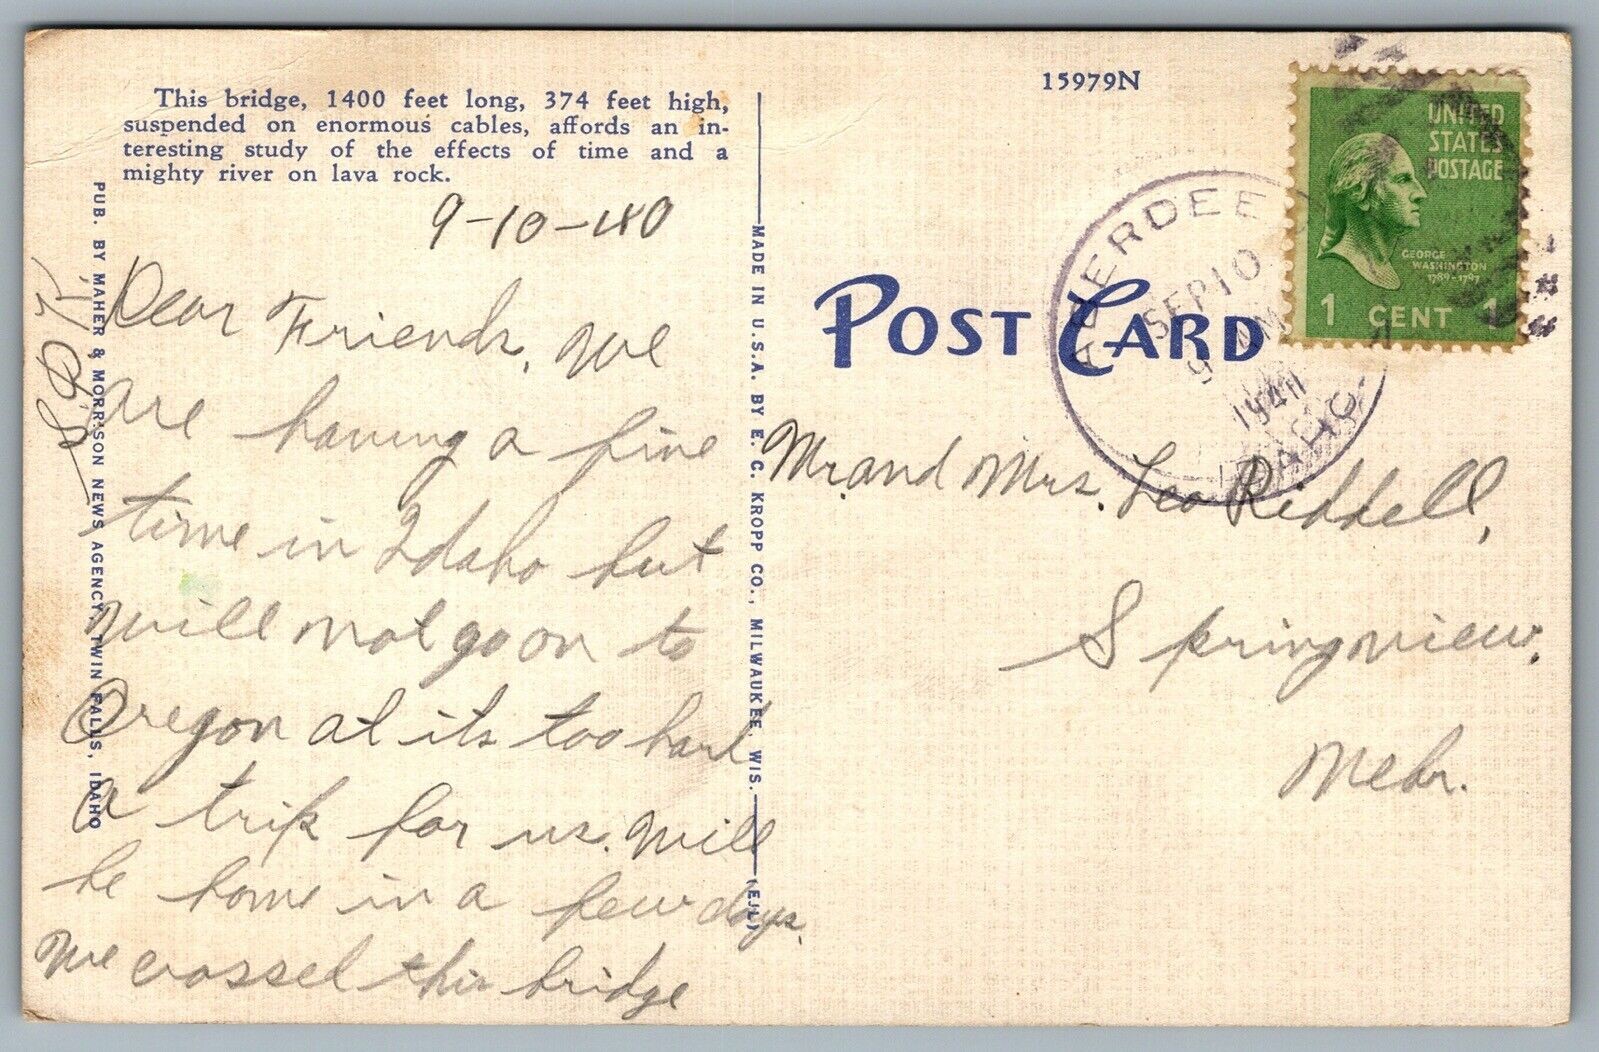 This bridge, 1400 feet long, 374 feet high,
suspended on enormous cables, affords an in-
teresting study of the effects of time and a
mighty river on lava rock.
15979N
UNITED
STATES
POSTAGE
GEORGE
WASHINGTON
1789-1797
1 CENT 1
ABERDEE
SEP 10
9 AM
194
IDAHO
POST CARD
PUB. BY MAHER & MORRISON NEWS AGENCY, TWIN FALLS, IDAHO
MADE IN U.S.A. BY E. C. KROPP CO., MILWAUKEE, WIS.
(EJL)
9-10-40
Dear Friends, We
are having a fine
time in Idaho but
will not go on to
Oregon at its too hard
a trip for us. Will
be home in a few days.
We crossed this bridge
Mr. and Mrs. Leo Riddell,
Springview,
Nebr.